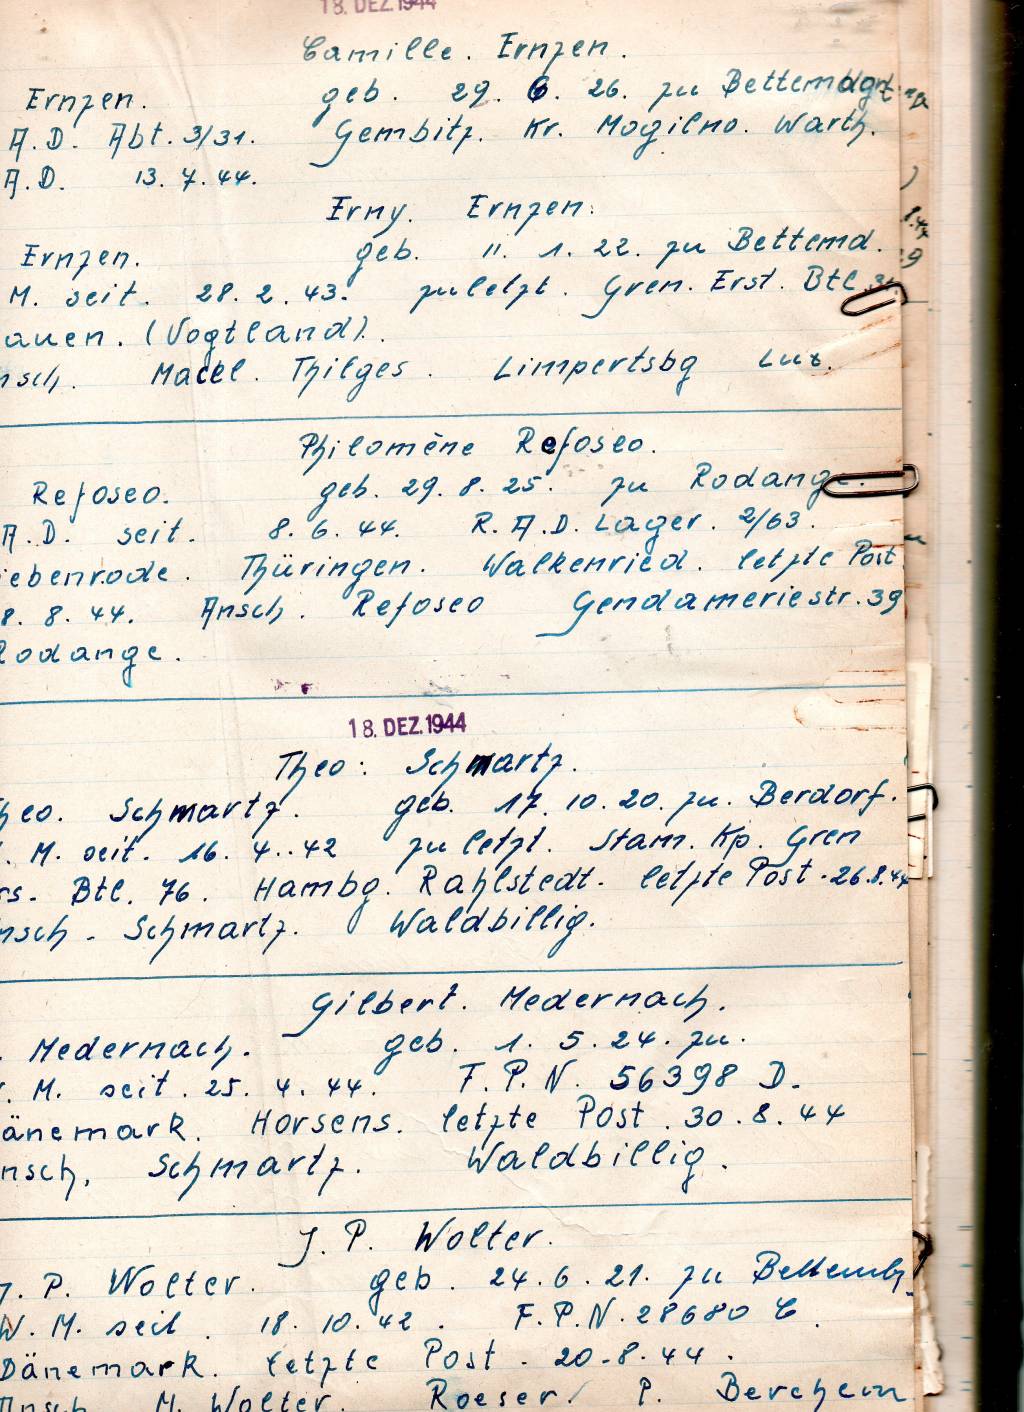 18. DEZ. 1944
Camille. Ernzen.
Ernzen. geb. 29. 6. 26. zu
A.D. Abt. 3/31. Gembitz. Kr. Mogilno. Warth.
A.D. 13. 7. 44.
Erny. Ernzen.
Ernzen. geb. 11. 1. 22. zu Bettemd.
M. seit. 28. 2. 43. zuletzt. Gren. Erst. Btl.
auen. (Vogtland).
nsch. Thilges. Limpertsbg Lux.
Philomène Refosco.
Refosco. geb. 29. 8. 25. zu Rodange.
A.D. seit. 8. 6. 44. R.A.D. Lager. 2/63.
iebenrode. Thüringen. Walkenried. letzte Post
8. 8. 44. Ansch. Refosco Gendameriestr. 39
Rodange.
18. DEZ. 1944
Theo: Schmartz.
heo. Schmartz. geb. 17. 10. 20. zu. Berdorf.
. M. seit. 16. 4. 42 zuletzt. Stam. Kp. Gren
rs. Btl. 76. Hambg. Rahlstedt. letzte Post. 26.8.44
nsch. Schmartz. Waldbillig.
Gilbert. Medernach.
. Medernach. geb. 1. 5. 24. zu.
. M. seit. 25. 4. 44. F.P.N. 56398 D.
änemark. Horsens. letzte Post. 30. 8. 44
nsch. Schmartz. Waldbillig.
J. P. Wolter.
J. P. Wolter. geb. 24. 6. 21. zu Bettembg.
W. M. seit. 18. 10. 42. F.P.N. 28680 C.
Dänemark. letzte Post. 20. 8. 44.
Ansch M. Wolter. Roeser / P. Berchem